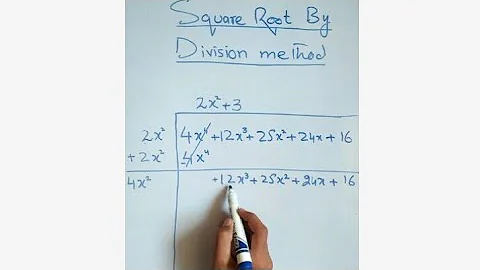 Square Root By
Division method
2x²+3
2x² 4x⁴+12x³+25x²+24x+16
+2x² 4x⁴
4x² +12x³+25x²+24x+16